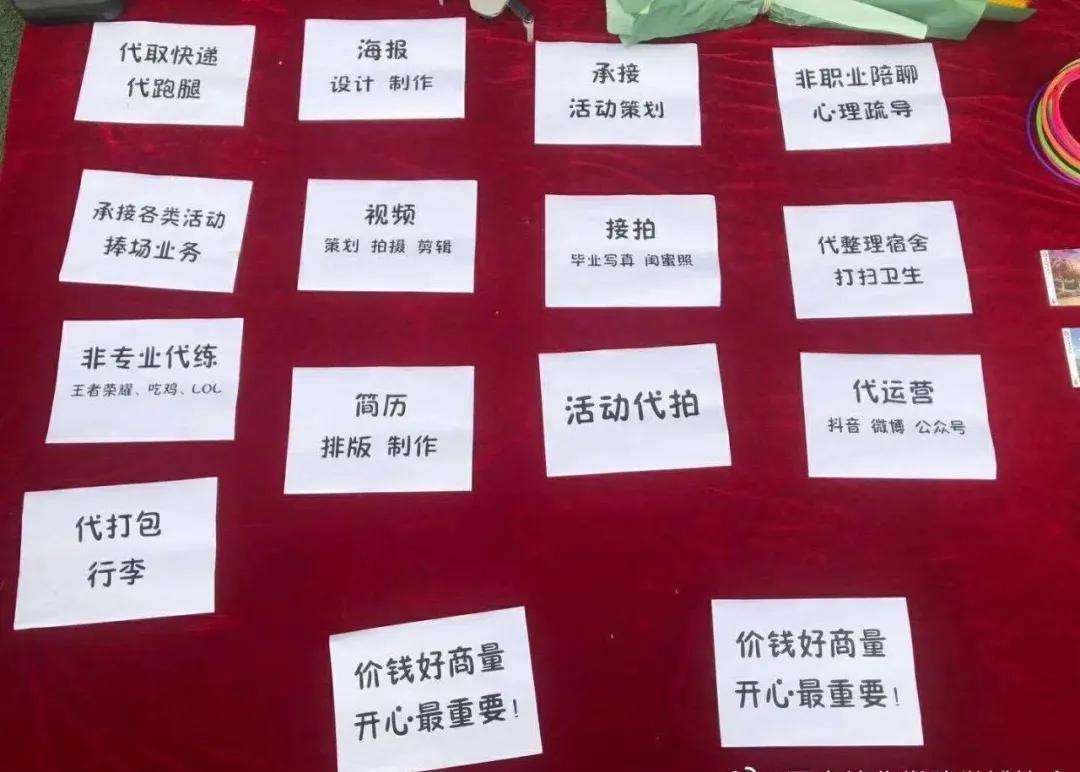 代取快递
代跑腿
海报
设计 制作
承接
活动策划
非职业陪聊
心理疏导
承接各类活动
捧场业务
视频
策划 拍摄 剪辑
接拍
毕业写真 闺蜜照
代整理宿舍
打扫卫生
非专业代练
王者荣耀、吃鸡、LOL
简历
排版 制作
活动代拍
代运营
抖音 微博 公众号
代打包
行李
价钱好商量
开心最重要!
价钱好商量
开心最重要!